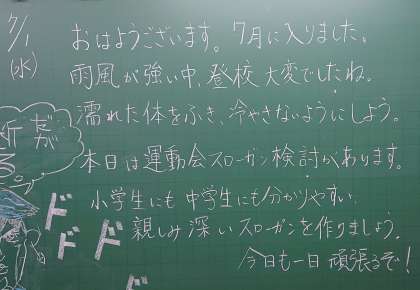 7/1
(水)
おはようございます。7月に入りました。
雨風が強い中、登校大変でしたね。
濡れた体をふき、冷やさないようにしよう。
本日は運動会スローガン検討があります。
小学生にも中学生にも分かりやすい、
親しみ深いスローガンを作りましょう。
今日も一日頑張るぞ!
だが
る
ド
ド
ド
ド